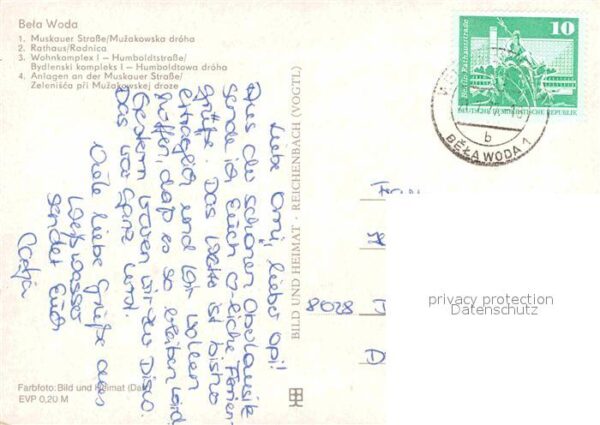 Beła Woda
1. Muskauer Straße/Mužakowska dróha
2. Rathaus/Radnica
3. Wohnkomplex I – Humboldtstraße/
Bydlenski kompleks I – Humboldtowa dróha
4. Anlagen an der Muskauer Straße/
Zelenišća při Mužakowskej droze
Liebe Omi, lieber Opi!
Aus der schönen Oberlausitz
sende ich Euch liebe Ferien-
grüße. Das Wetter ist bisher
erträglich und wir wollen
hoffen, daß es so bleiben wird.
Gestern waren wir zur Disco.
Das war ganz
Viele liebe Grüße aus
Weißwasser
sendet Euch
Katja
Farbfoto: Bild und Heimat
EVP 0,20 M
BILD UND HEIMAT · REICHENBACH (VOGTL)
10
DEUTSCHE DEMOKRATISCHE REPUBLIK
b
BEŁA WODA 1
8028 D
privacy protection
Datenschutz